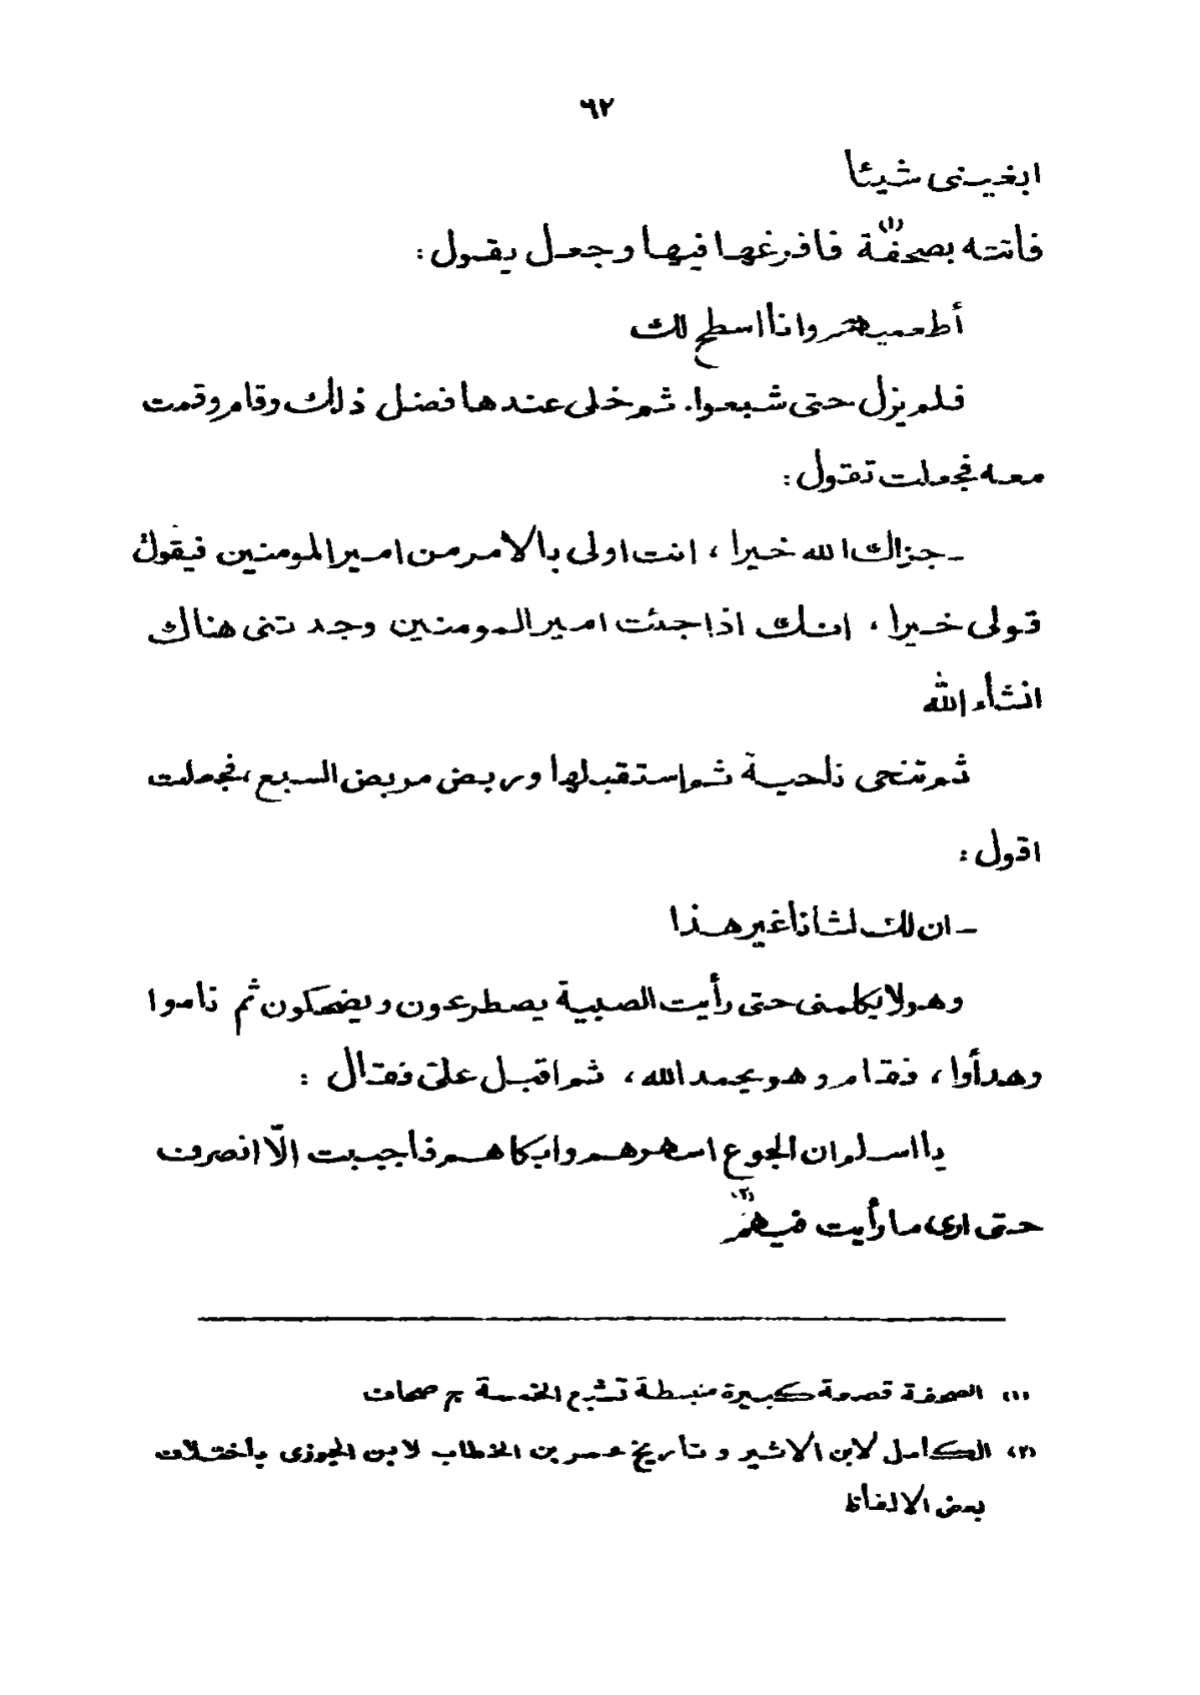 ٦٢
ابغينى شيئا
فأتته بصحفة (١) فافرغها فيها وجعل يقول :
أطعميهم وانا اسطح لك
فلم يزل حتى شبعوا. ثم خلى عندها فضل ذلك وقام وقمت
معه فجعلت تقول :
ـ جزاك الله خيرا ، انت اولى بالامر من امير المومنين فيقول
قولى خيرا ، انك اذا جئت امير المومنين وجدتنى هناك
انشأء الله
ثم تنحى ناحية ثم إستقبلها وربض مربض السبع ، فجعلت
اقول :
ـ ان لك لشأنا غير هذا
وهو لا يكلمنى حتى رأيت الصبية يصطرعون ويضحكون ثم ناموا
وهدأوا ، فقام وهو يحمد الله ، ثم اقبل علىّ فقال :
يا اسلم ان الجوع اسهرهم وابكاهم فأجببت الّا انصرف
حتى ارى ما رأيت فيهم (٢)
(١) الصحفة قصعة كبيرة منبسطة تشبع الخمسة ج صحاف
(٢) الكامل لابن الاثير و تأريخ عمر بن الخطاب لابن الجوزى بأختلاف
بعض الالفاظ